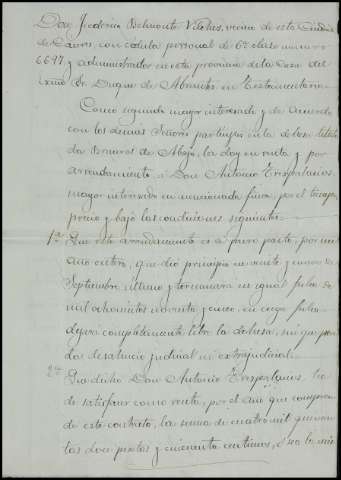 Don Federico Belmonte Vilches, vecino de esta Ciudad
de Cáceres con cédula personal de 6ª clase número
6697 y administrador en esta provincia de la Casa del
Excmo Sr. Duque de Abrantes en Testamentaría.
Como segundo mayor interesado y de acuerdo
con los demás Señores partícipes en la dehesa titula
da de Abajo, la doy en renta y por
arrendamiento a Don Antonio Trespalacios,
mayor interesado en mencionada finca, por el tiempo,
precio y bajo las condiciones siguientes:
1ª Que este arrendamiento es a puro pasto, por un
año entero, que dio principio en veinte y cinco de
Septiembre último y terminará en igual fecha de
mil ochocientos noventa y cinco, en cuya fecha
dejará completamente libre la dehesa, sin que pue
da desahucio judicial ni extrajudicial.
2ª Que dicho Don Antonio Trespalacios ha
de satisfacer como renta, por el año que comprende
este contrato, la suma de cuatro mil quinien
tas doce pesetas y cincuenta céntimos, o sea la